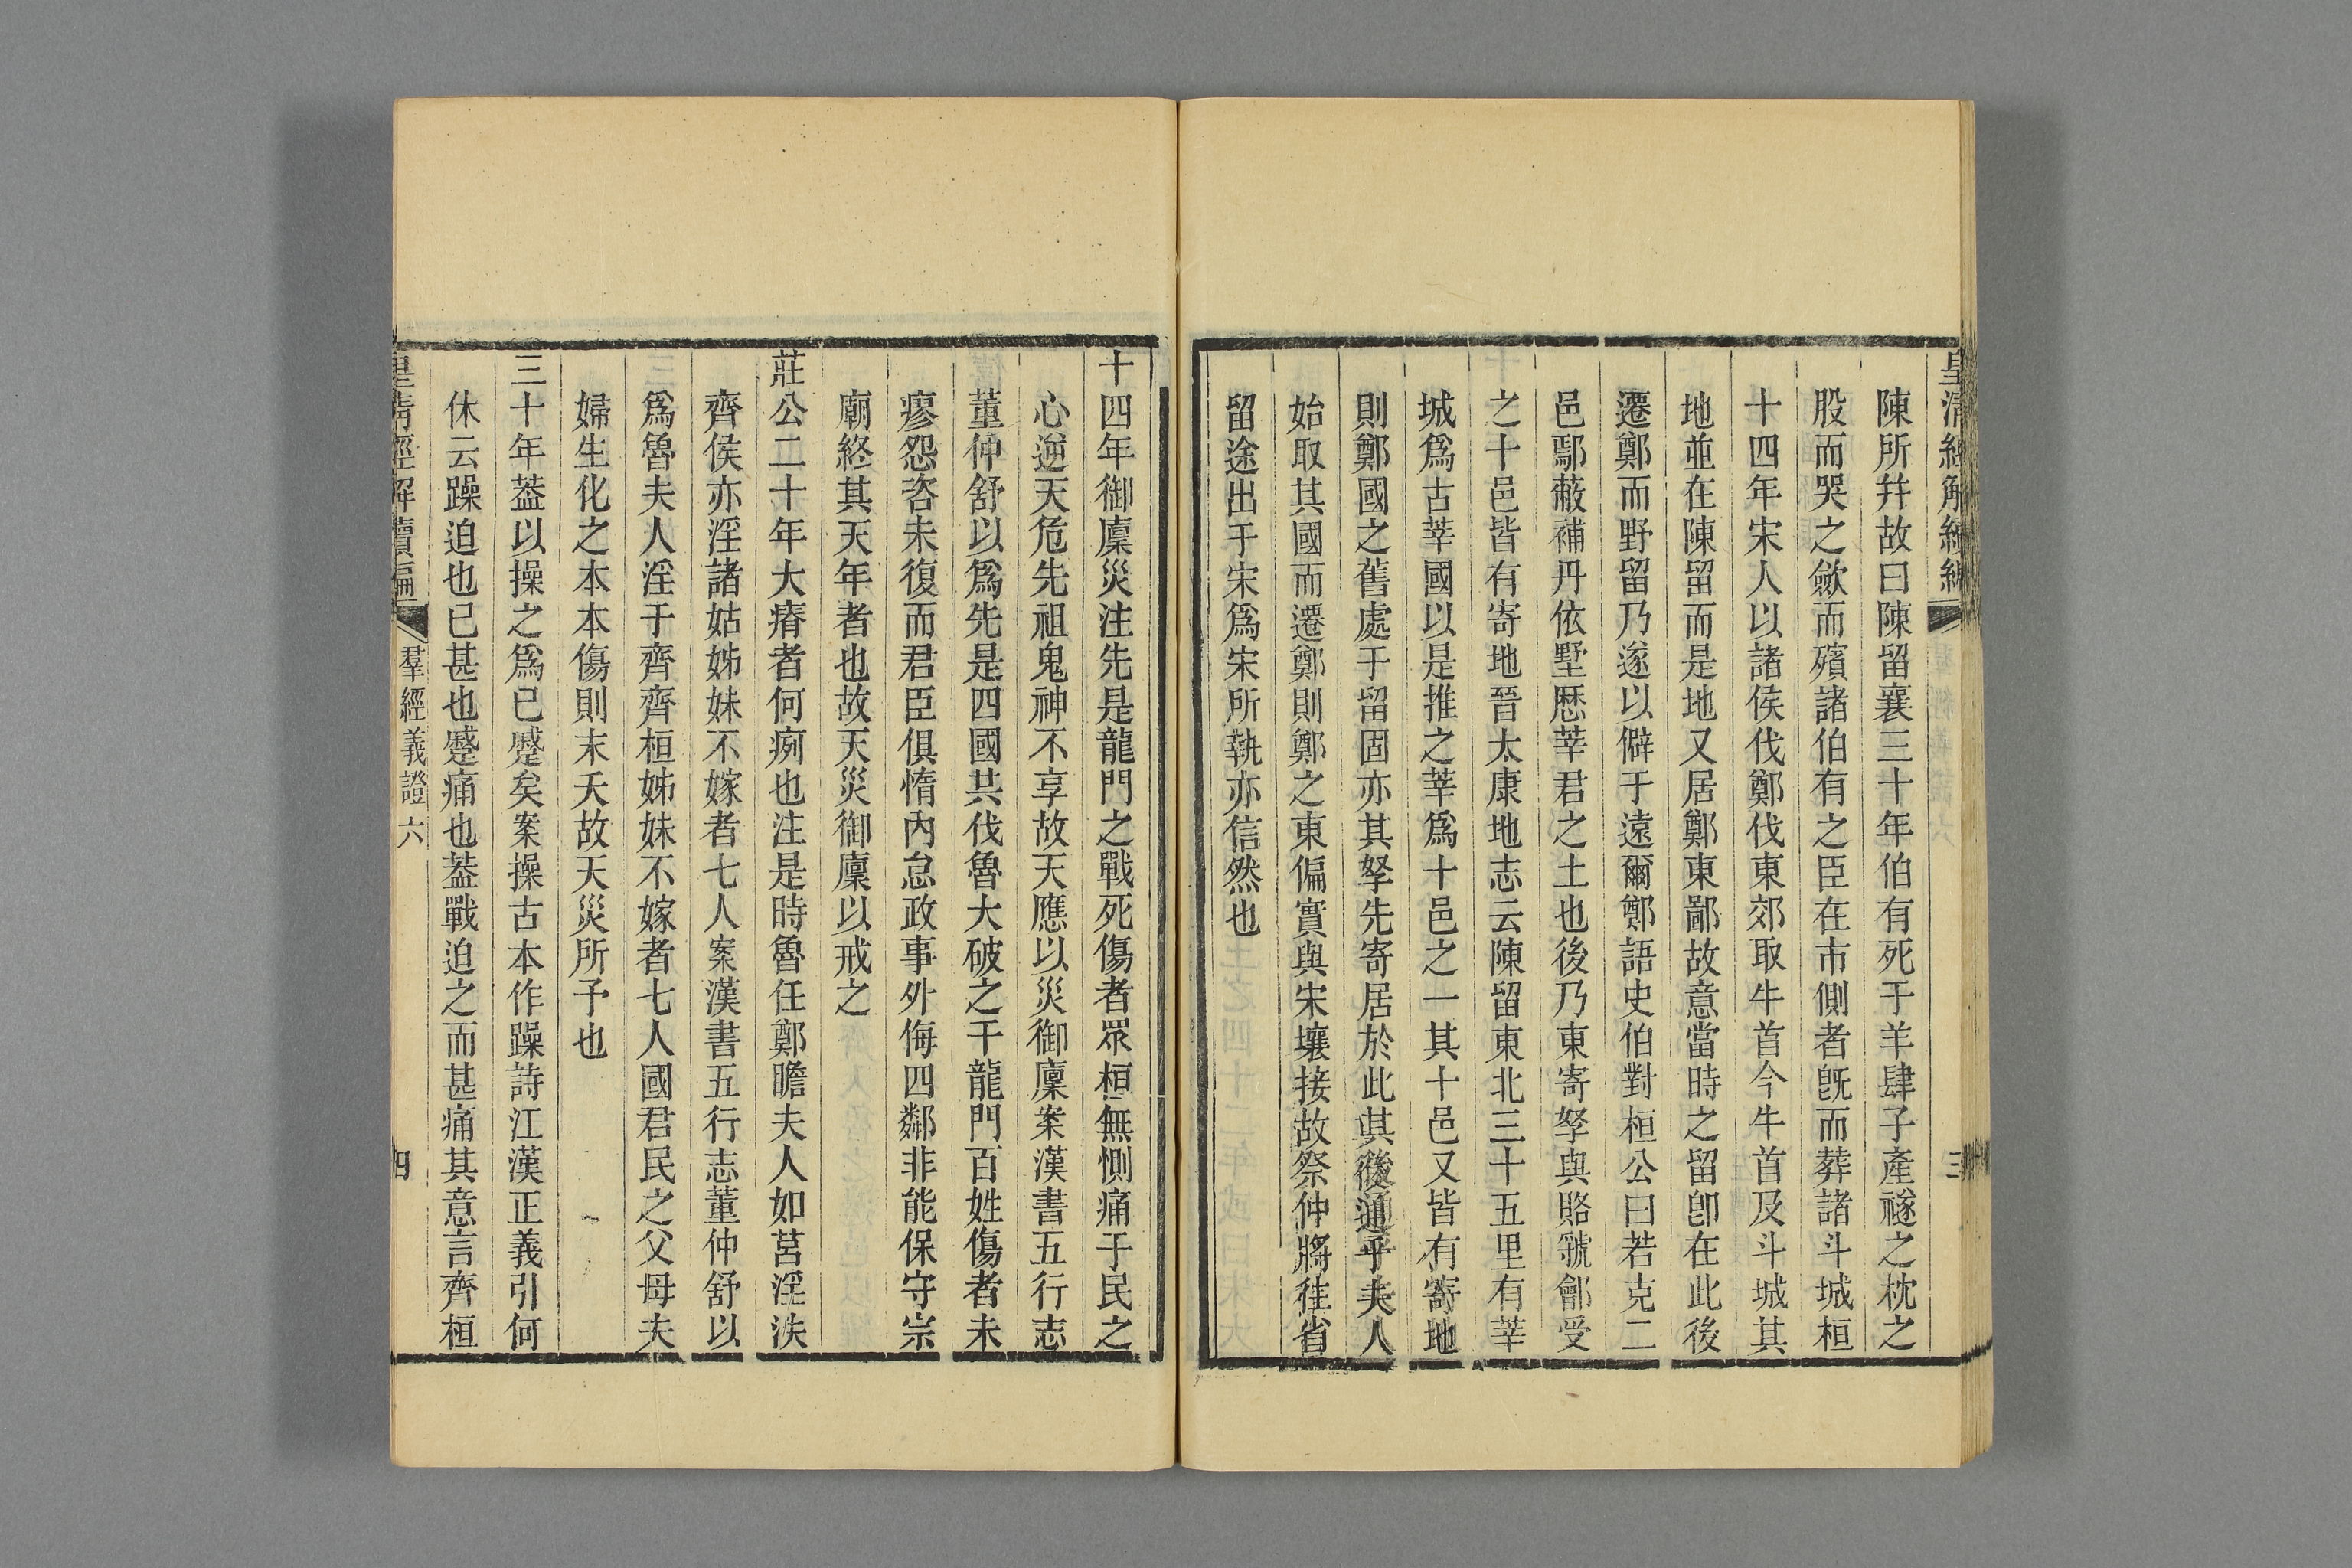 陳所幷故曰陳留襄三十年伯有死于羊肆子產禭之枕之
股而哭之歛而殯諸伯有之臣在市側者旣而葬諸斗城桓
十四年宋人以諸侯伐鄭伐東郊取牛首今牛首及斗城其
地並在陳留而是地又居鄭東鄙故意當時之留卽在此後
遷鄭而野留乃遂以僻于遠爾鄭語史伯對桓公曰若克二
邑鄢蔽補丹依墅厯莘君之土也後乃東寄孥與賂虢鄶受
之十邑皆有寄地晉太康地志云陳留東北三十五里有莘
城爲古莘國以是推之莘爲十邑之一其十邑又皆有寄地
則鄭國之舊處于留固亦其孥先寄居於此其後通乎夫人
始取其國而遷鄭則鄭之東偏實與宋壤接故祭仲將往省
留途出于宋爲宋所執亦信然也
十四年御廩災注先是龍門之戰死傷者眾桓無惻痛于民之
心逆天危先祖鬼神不享故天應以災御廩案漢書五行志
董仲舒以爲先是四國共伐魯大破之于龍門百姓傷者未
瘳怨咨未復而君臣俱惰內怠政事外侮四鄰非能保守宗
廟終其天年者也故天災御廩以戒之
莊公二十年大瘠者何痾也注是時魯任鄭瞻夫人如莒淫泆
齊侯亦淫諸姑姊妹不嫁者七人案漢書五行志董仲舒以
爲魯夫人淫于齊齊桓姊妹不嫁者七人國君民之父母夫
婦生化之本本傷則末夭故天災所予也
三十年葢以操之爲已蹙矣案操古本作躁詩江漢正義引何
休云躁迫也已甚也蹙痛也葢戰迫之而甚痛其意言齊桓
皇清經解續編
羣經義證六
四